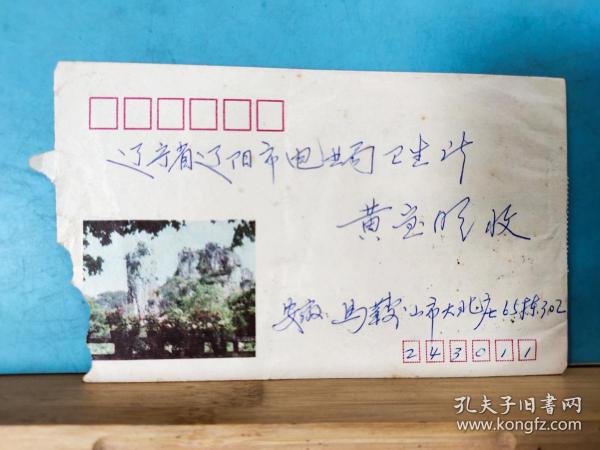 辽宁省辽阳市电业局卫生所
黄宝明收
安徽 马鞍山市大北庄65栋302
243011
孔夫子旧书网
www.kongfz.com